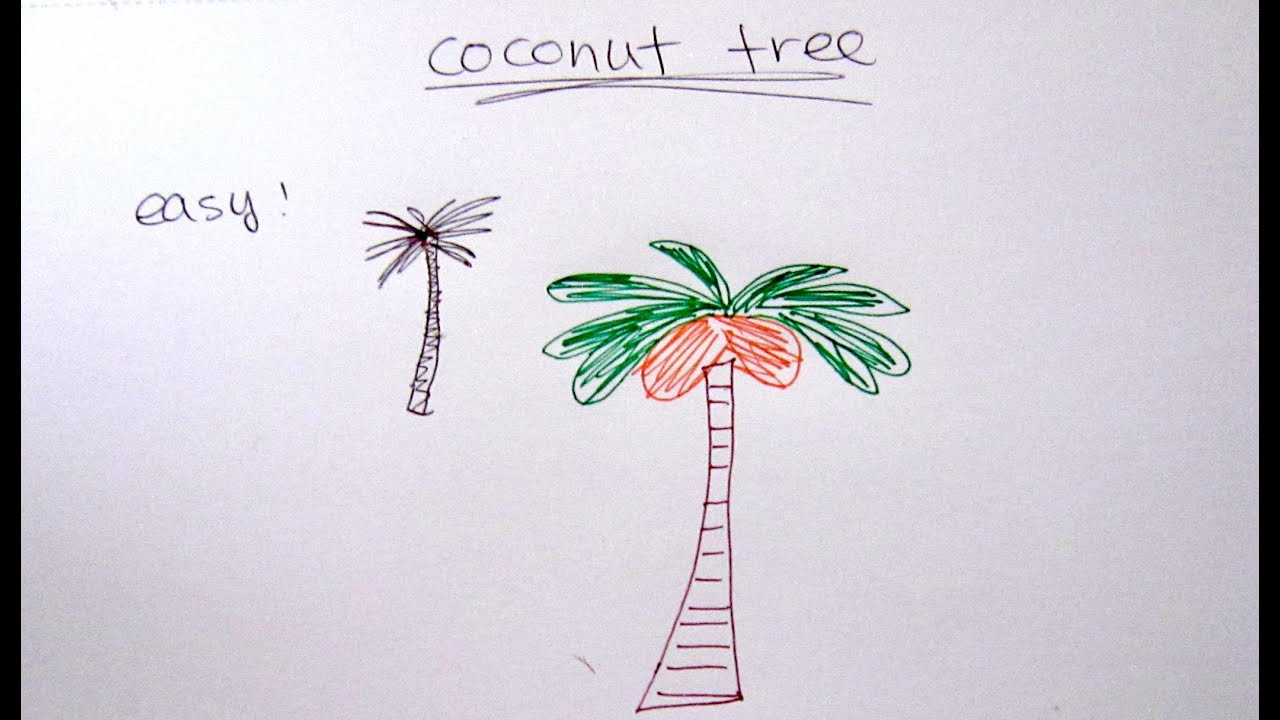 coconut tree
easy!